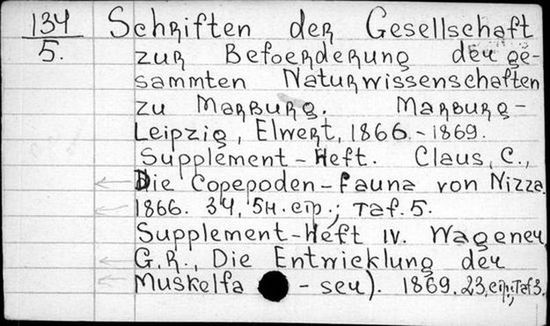 134 Schriften der Gesellschaft
5. zur Befoerderung der ge-
sammten Naturwissenschaften
zu Marburg. Marburg-
Leipzig, Elwert, 1866.-1869.
Supplement-Heft. Claus, C.,
Die Copepoden-Fauna von Nizza.
1866. 34, 5н. стр.; Taf. 5.
Supplement-Heft IV. Wagener
G.R., Die Entwicklung der
Muskelfa - ser). 1869. 23 стр.; Taf 3.